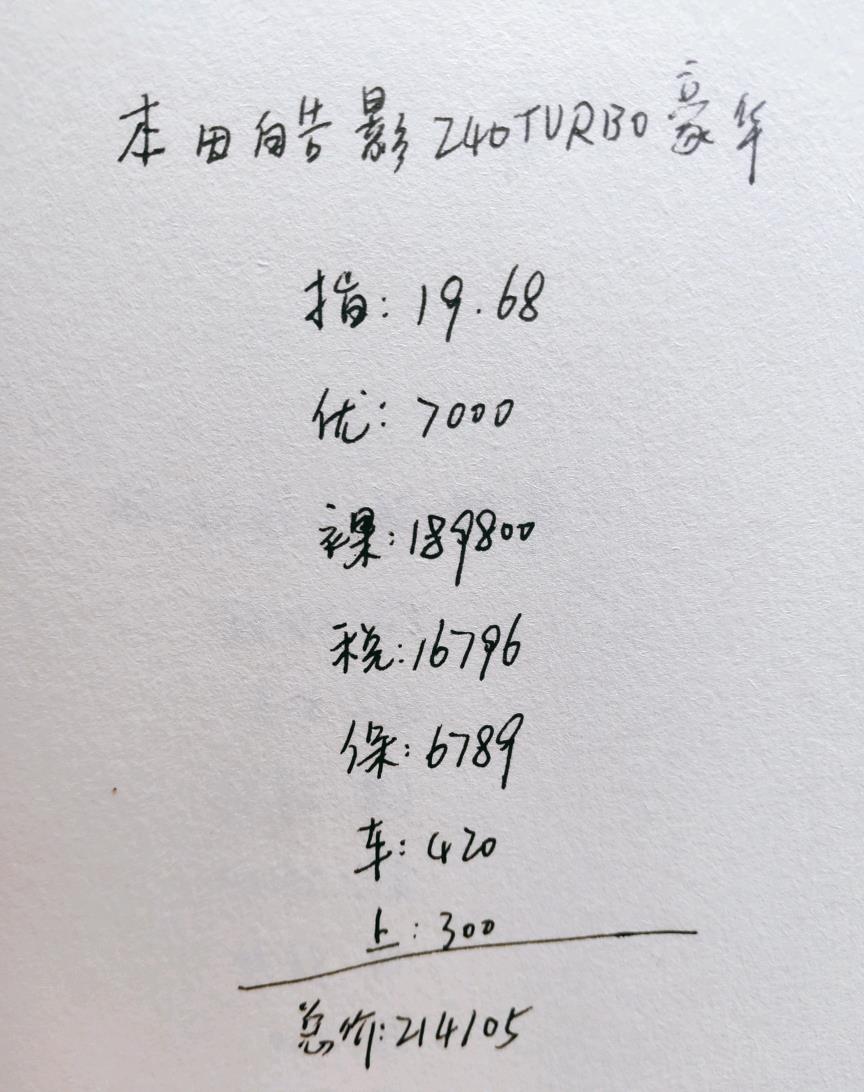 本田皓影240TURBO豪华
指:19.68
优:7000
裸:189800
税:16796
保:6789
车:420
上:300
总价:214105